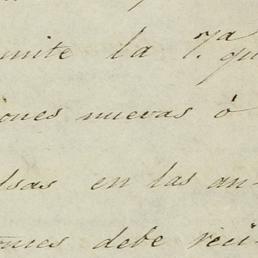 mite la 7.ª qu
iones nuevas ó
lsas en las an-
ones debe reü-